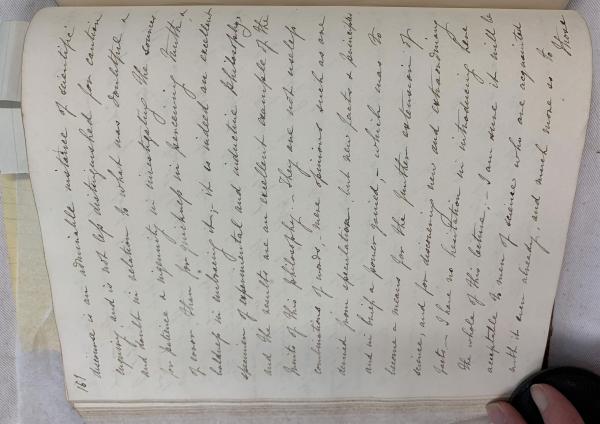 161
discourse is an admirable instance of scientific
inquiry, and is not less distinguished for caution
and doubt in relation to what was doubtful &
for patience & ingenuity in investigating the sources
of error than for quickness in perceiving truth &
boldness in embracing it; it is indeed an excellent
specimen of experimental and inductive philosophy,
and the results are an excellent example of the
fruits of this philosophy. — They are not useless
combinations of words, mere opinions such as are
derived from speculation but new facts & principles
and in brief a power gained, — which was to
become a means for the further extension of
science, and for discovering new and extraordinary
facts — I have no hesitation in introducing here
the whole of this lecture; — I am sure it will be
acceptable to men of science who are acquainted
with it even already; and much more so to
those